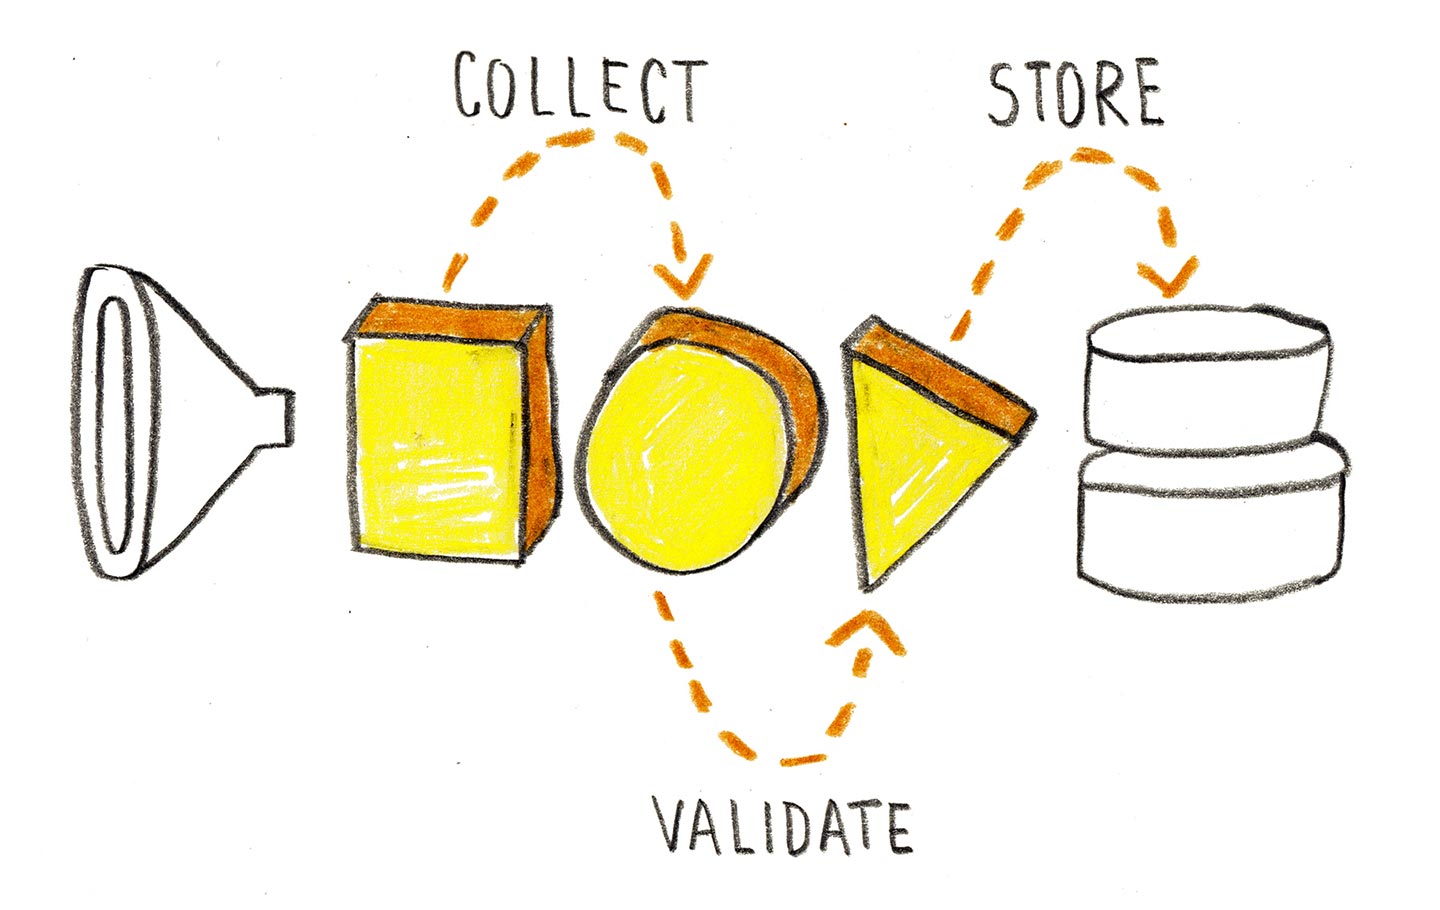 COLLECT
STORE
VALIDATE